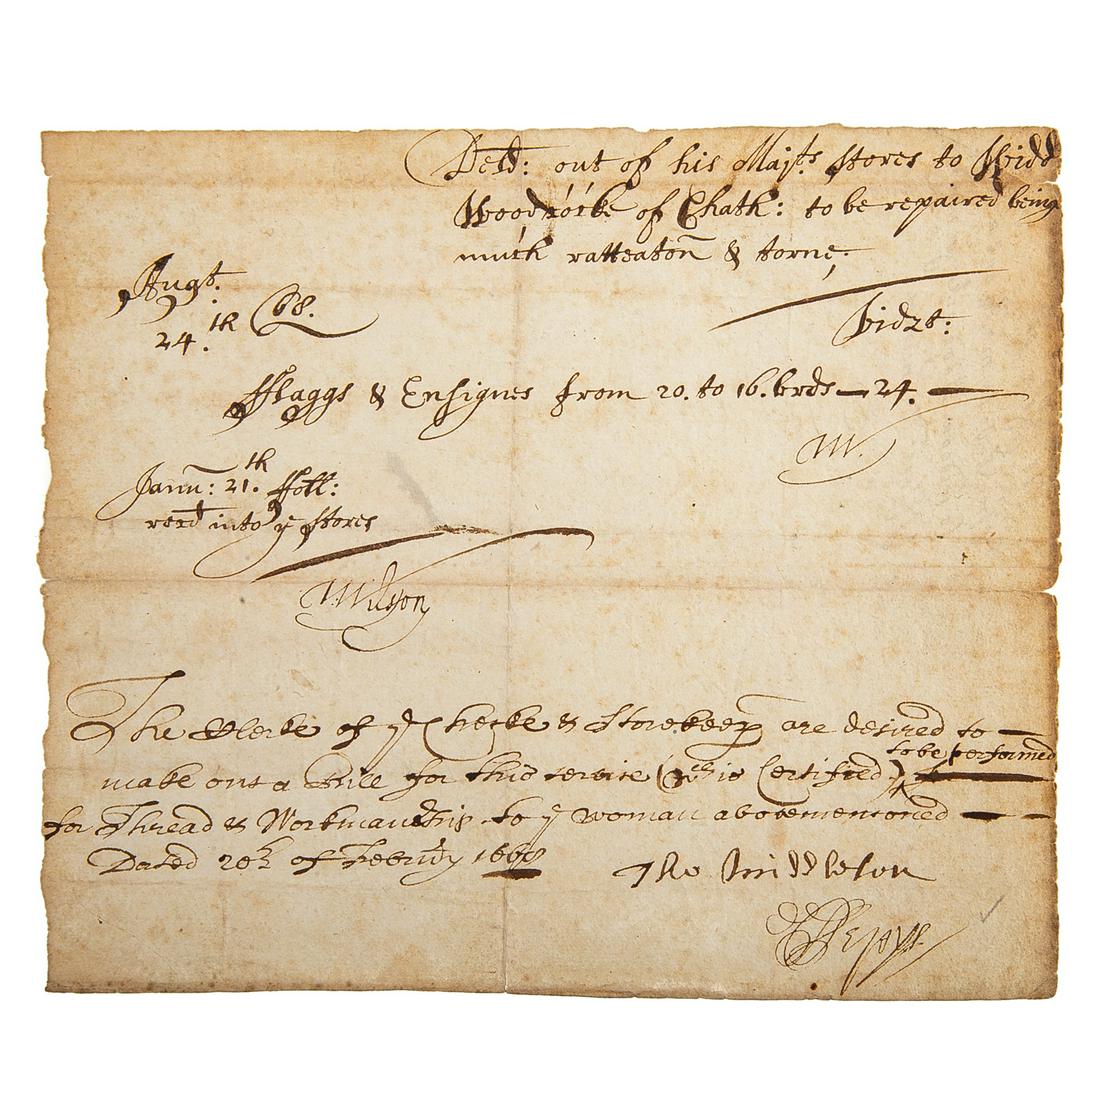 Deld: out of his Majts Stores to Widd
Woodnocke of Chath: to be repaired being
much ratteaton & torne,
Augt.
24.th 68.
vidzt:
fflaggs & Ensignes from 20. to 16. brds — 24. —
W.
Jann: 21.th ffoll:
recd into ye Stores
Wilson
The Clerke of ye Checke & Storekeepr are desired to —
to be performed
make out a Bill for this service (wch is Certified)
for Thread & Workmanship to ye woman abovementioned —
Dated 20th of Februry 1668
Tho Middleton
S Pepys.